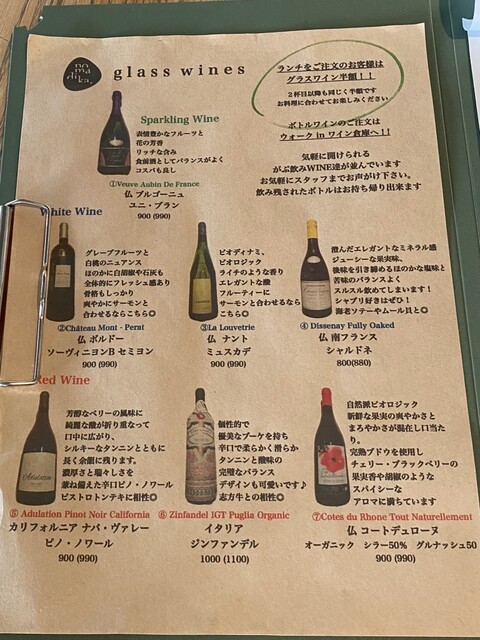 nomaduka.
glass wines
ランチをご注文のお客様は
グラスワイン半額！！
2杯目以降も同じく半額です
お料理に合わせてお楽しみください
ボトルワインのご注文は
ウォーク in ワイン倉庫へ!!
気軽に開けられる
がぶ飲みWINE達が並んでいます
お気軽にスタッフまでお声がけ下さい。
飲み残されたボトルはお持ち帰り出来ます
Sparkling Wine
表情豊かなフルーツと
花の芳香
リッチな含み
食前酒としてバランスがよく
コスパも良し
①Veuve Aubin De France
仏 ブルゴーニュ
ユニ・ブラン
900 (990)
White Wine
グレープフルーツと
白桃のニュアンス
ほのかに白胡椒や石灰も
全体的にフレッシュ感あり
骨格もしっかり
爽やかにサーモンと
合わせるならこちら◎
②Château Mont - Perat
仏 ボルドー
ソーヴィニヨンB セミヨン
900 (990)
ビオディナミ、
ビオロジック
ライチのような香り
エレガントな酸
フルーティーに
サーモンと合わせるなら
こちら◎
③La Louvetrie
仏 ナント
ミュスカデ
900 (990)
澄んだエレガントなミネラル感
ジューシーな果実味、
後味を引き締めるほのかな塩味と
苦味のバランスよく
スルスル飲めてしまいます！
シャブリ好きはぜひ！
海老ソテーやムール貝と◎
④ Dissenay Fully Oaked
仏 南フランス
シャルドネ
800(880)
Red Wine
芳醇なベリーの風味に
綺麗な酸が折り重なって
口中に広がり、
シルキーなタンニンとともに
長く余韻に残ります。
濃厚さと瑞々しさを
兼ね備えた辛口ピノ・ノワール
ビストロトンテキに相性◎
⑤ Adulation Pinot Noir California
カリフォルニア ナパ・ヴァレー
ピノ・ノワール
900 (990)
個性的で
優美なブーケを持ち
辛口で柔らかく滑らか
タンニンと酸味の
完璧なバランス
デザインも可愛いです♪
志方牛との相性◎
⑥ Zinfandel IGT Puglia Organic
イタリア
ジンファンデル
1000 (1100)
自然派ビオロジック
新鮮な果実の爽やかさと
まろやかさが混在し口当
たり。
完熟ブドウを使用し
チェリー・ブラックベリーの
果実香や胡椒のような
スパイシーな
アロマに満ちています
⑦Cotes du Rhone Tout Naturellement
仏 コートデュローヌ
オーガニック シラー50% グルナッシュ50
900 (990)